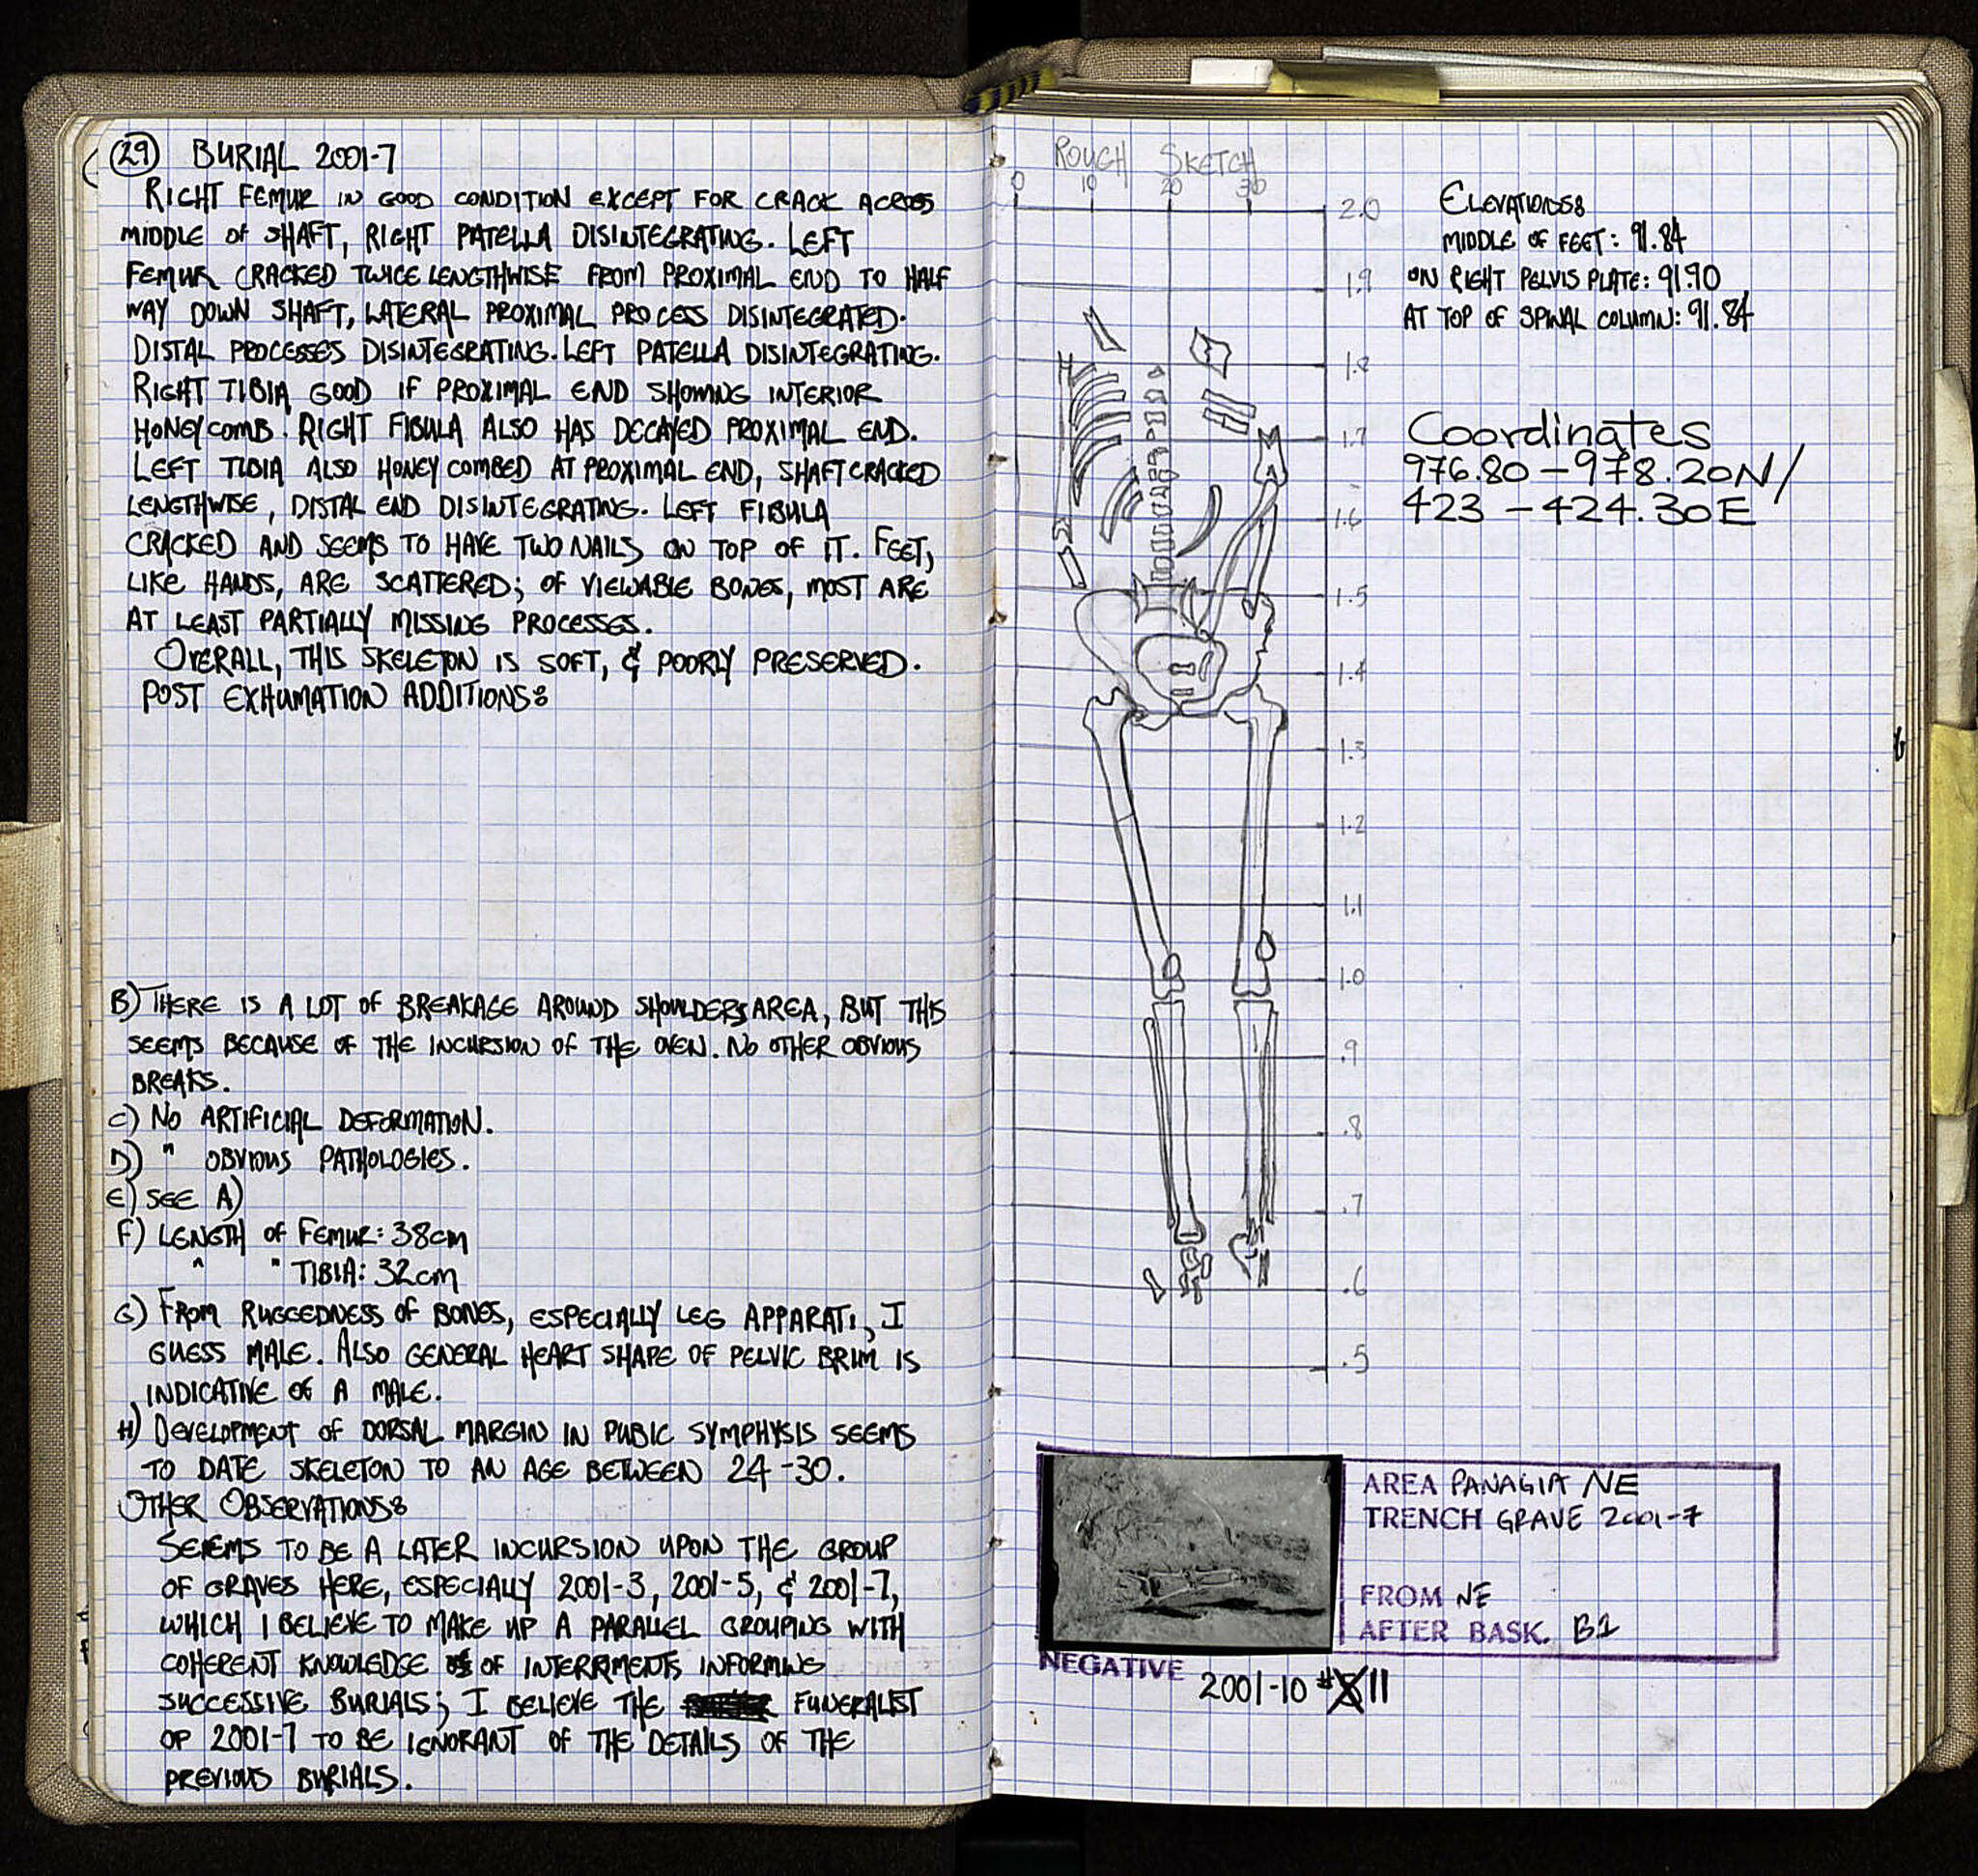 29 BURIAL 2001-7
RIGHT FEMUR IN GOOD CONDITION EXCEPT FOR CRACK ACROSS
MIDDLE OF SHAFT, RIGHT PATELLA DISINTEGRATING. LEFT
FEMUR CRACKED TWICE LENGTHWISE FROM PROXIMAL END TO HALF
WAY DOWN SHAFT, LATERAL PROXIMAL PROCESS DISINTEGRATED.
DISTAL PROCESSES DISINTEGRATING. LEFT PATELLA DISINTEGRATING.
RIGHT TIBIA GOOD IF PROXIMAL END SHOWING INTERIOR
HONEYCOMB. RIGHT FIBULA ALSO HAS DECAYED PROXIMAL END.
LEFT TIBIA ALSO HONEYCOMBED AT PROXIMAL END, SHAFT CRACKED
LENGTHWISE, DISTAL END DISINTEGRATING. LEFT FIBULA
CRACKED AND SEEMS TO HAVE TWO NAILS ON TOP OF IT. FEET,
LIKE HANDS, ARE SCATTERED; OF VIEWABLE BONES, MOST ARE
AT LEAST PARTIALLY MISSING PROCESSES.
OVERALL, THIS SKELETON IS SOFT, & POORLY PRESERVED.
POST EXHUMATION ADDITIONS:
B) THERE IS A LOT OF BREAKAGE AROUND SHOULDERS AREA, BUT THIS
SEEMS BECAUSE OF THE INCURSION OF THE OVEN. NO OTHER OBVIOUS
BREAKS.
C) NO ARTIFICIAL DEFORMATION.
D) " OBVIOUS PATHOLOGIES.
E) SEE A)
F) LENGTH OF FEMUR: 38cm
" " TIBIA: 32cm
G) FROM RUGGEDNESS OF BONES, ESPECIALLY LEG APPARATI, I
GUESS MALE. ALSO GENERAL HEART SHAPE OF PELVIC BRIM IS
INDICATIVE OF A MALE.
H) DEVELOPMENT OF DORSAL MARGIN IN PUBIC SYMPHYSIS SEEMS
TO DATE SKELETON TO AN AGE BETWEEN 24-30.
OTHER OBSERVATIONS:
SEEMS TO BE A LATER INCURSION UPON THE GROUP
OF GRAVES HERE, ESPECIALLY 2001-3, 2001-5, & 2001-7,
WHICH I BELIEVE TO MAKE UP A PARALLEL GROUPING WITH
COHERENT KNOWLEDGE OF INTERRMENTS INFORMING
SUCCESSIVE BURIALS; I BELIEVE THE FUNERALIST
OF 2001-7 TO BE IGNORANT OF THE DETAILS OF THE
PREVIOUS BURIALS.
ROUGH SKETCH
0 10 20 30
2.0
1.9
1.8
1.7
1.6
1.5
1.4
1.3
1.2
1.1
1.0
.9
.8
.7
.6
.5
ELEVATIONS:
MIDDLE OF FEET: 91.84
ON RIGHT PELVIS PLATE: 91.90
AT TOP OF SPINAL COLUMN: 91.84
Coordinates
976.80 – 978.20N/
423 – 424.30E
AREA PANAGIA NE
TRENCH GRAVE 2001-7
FROM NE
AFTER BASK. B1
NEGATIVE 2001-10 # 11